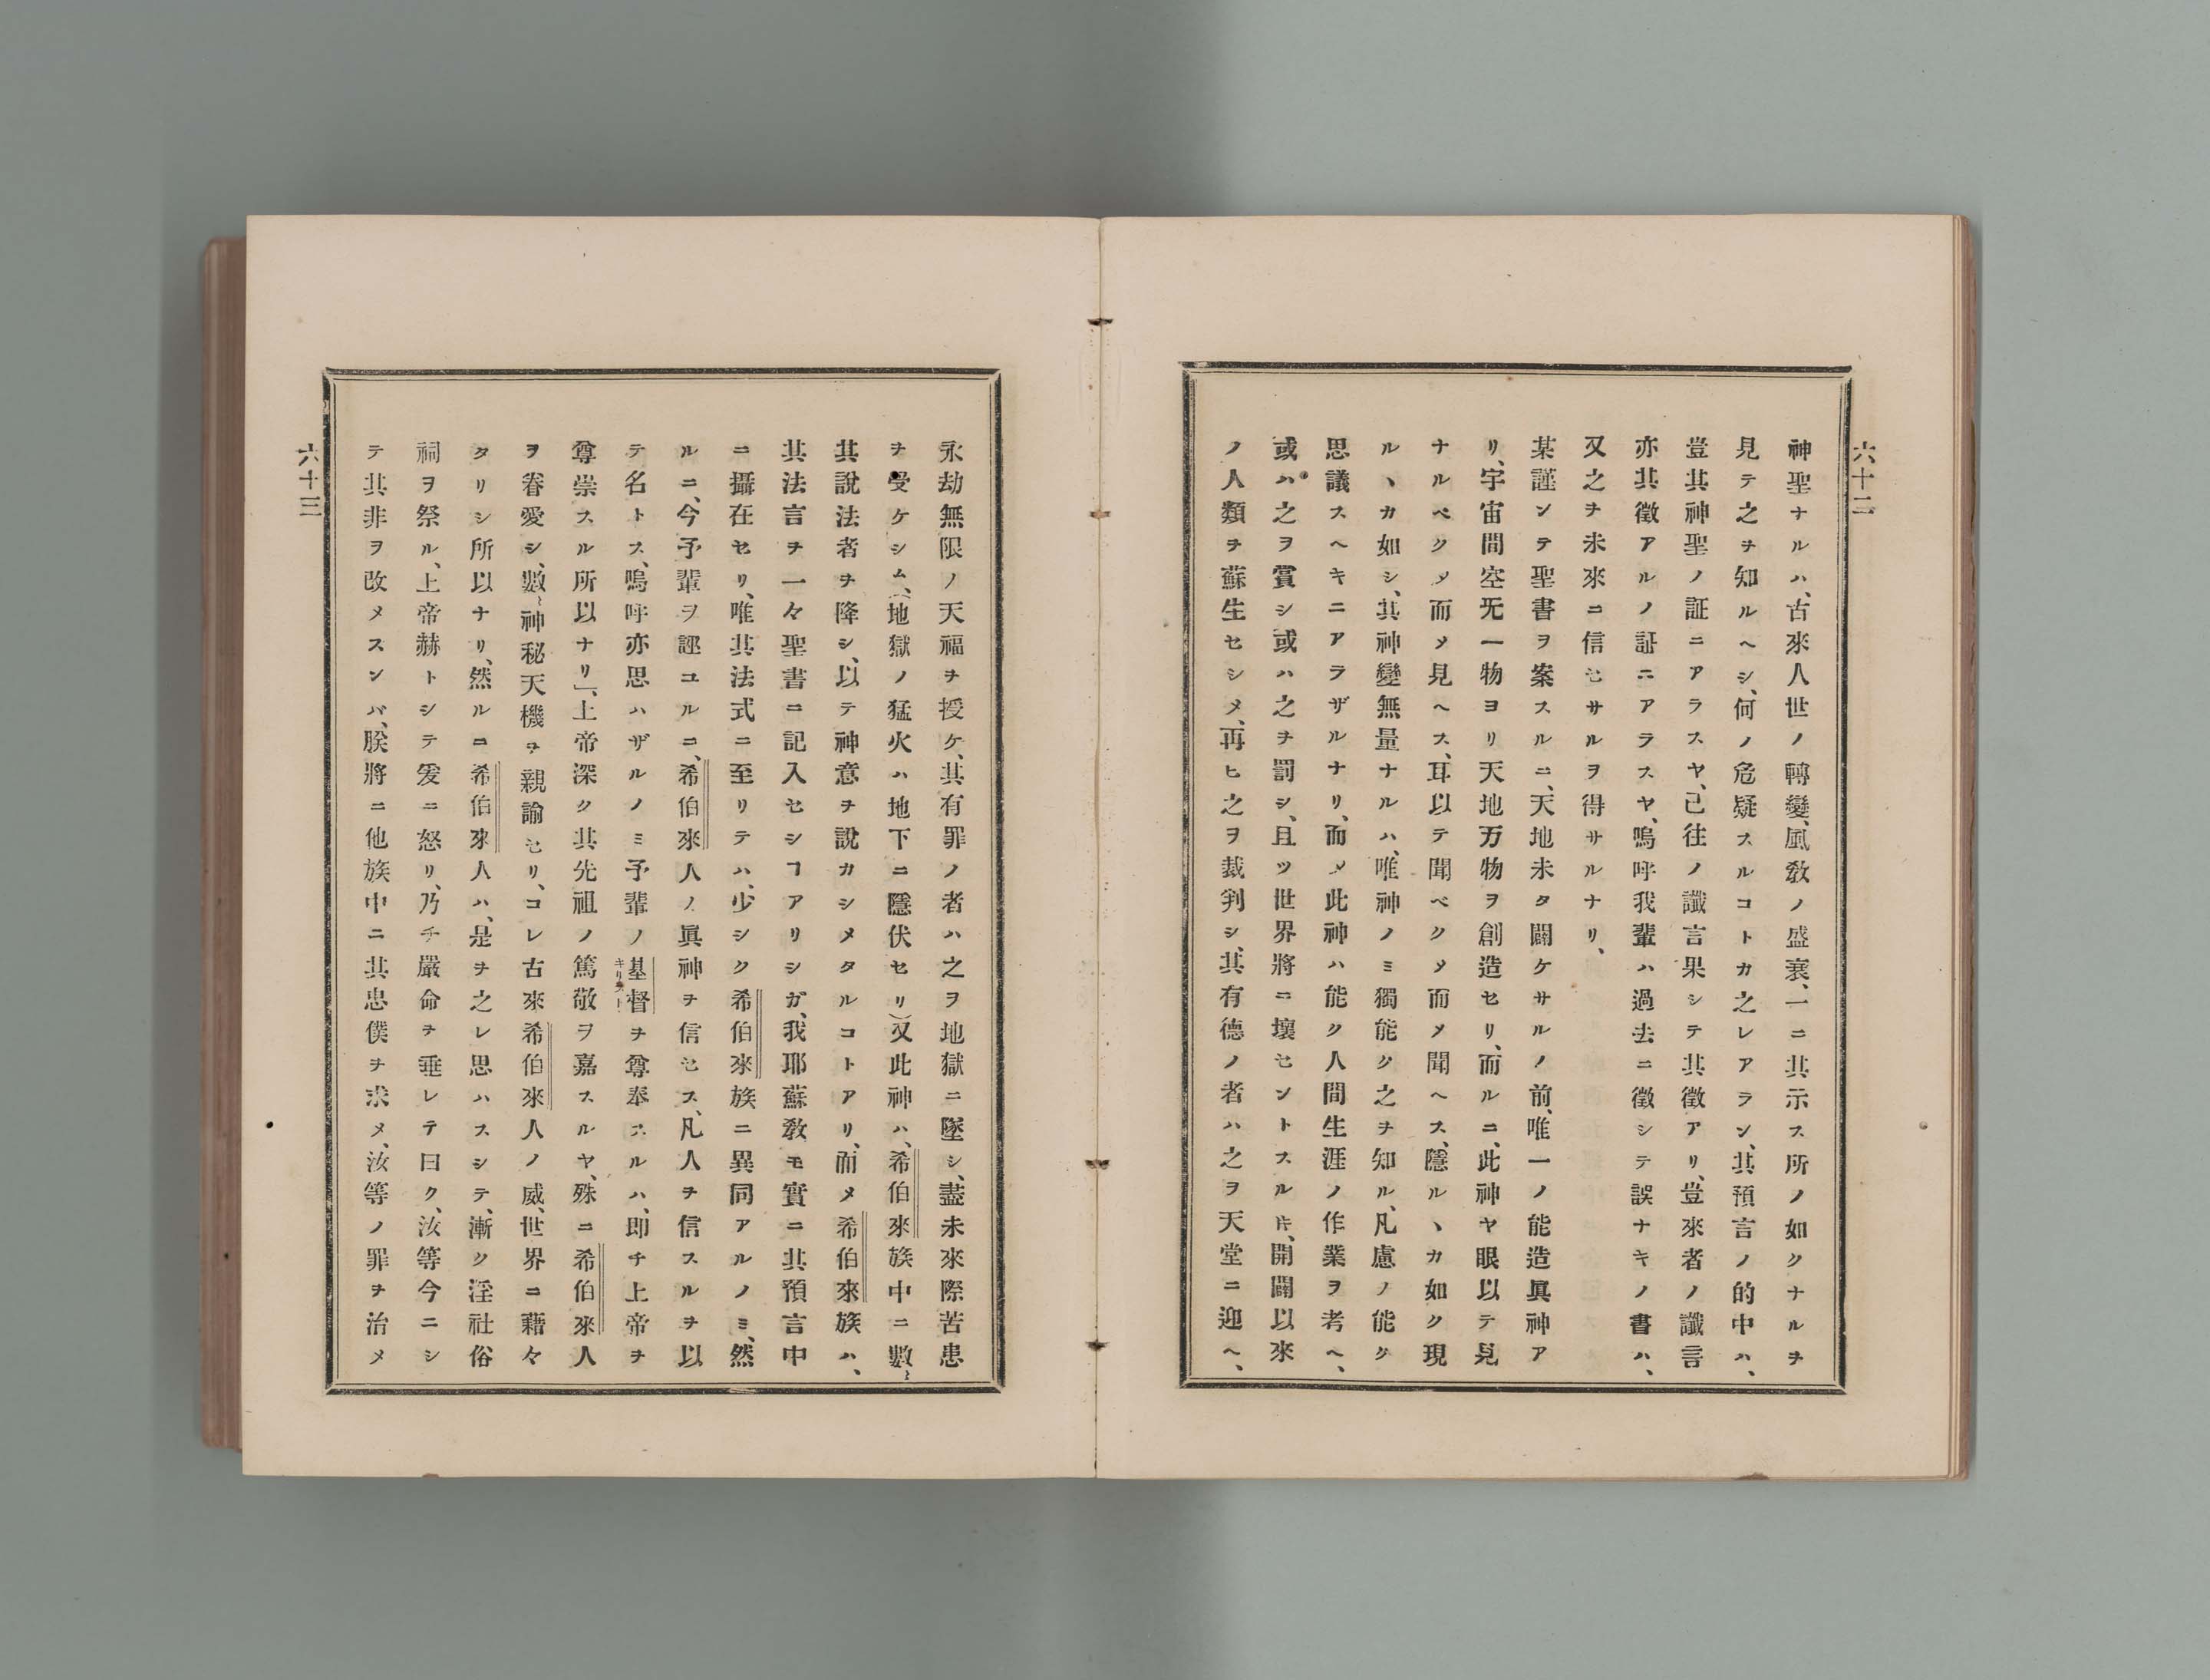 六十二
神聖ナルハ、古來人世ノ轉變、風敎ノ盛衰、一ニ其示ス所ノ如クナルヲ
見テ之ヲ知ルヘシ、何ノ危疑スルコトカ之レアラン、其預言ノ的中ハ、
豈其神聖ノ証ニアラスヤ、已往ノ讖言果シテ其徵アリ、豈來者ノ讖言
亦其徵アルノ証ニアラスヤ、嗚呼我輩ハ過去ニ徵シテ誤ナキノ書ハ、
又之ヲ未來ニ信セサルヲ得サルナリ、
某謹ンテ聖書ヲ案スルニ、天地未タ闢ケサルノ前、唯一ノ能造眞神ア
リ、宇宙間空无一物ヨリ天地万物ヲ創造セリ、而ルニ、此神ヤ眼以テ見
ナルベクメ而メ見ヘス、耳以テ聞ベクメ而メ聞ヘス、隱ルヽカ如ク現
ルヽカ如シ、其神變無量ナルハ、唯神ノミ獨能ク之ヲ知ル、凡慮ノ能ク
思議スヘキニアラザルナリ、而メ此神ハ能ク人間生涯ノ作業ヲ考ヘ、
或ハ之ヲ賞シ或ハ之ヲ罰シ、且ツ世界將ニ壞センとスルヰ、開闢以來
ノ人類ヲ蘇生セシメ、再ヒ之ヲ裁判シ、其有德ノ者ハ之ヲ天堂ニ迎ヘ、
永劫無限ノ天福ヲ授ケ、其有罪ノ者ハ之ヲ地獄ニ墜シ、盡未來際苦患
ヲ受ケシム、(地獄ノ猛火ハ地下ニ隱伏セリ)又此神ハ、希伯來族中ニ數〻
其說法者ヲ降シ、以テ神意ヲ說カシメタルコトアリ、而メ希伯來族ハ、
其法言ヲ一々聖書ニ記入セシヿアリシガ、我耶蘇敎モ實ニ其預言中
ニ攝在セリ、唯其法式ニ至リテハ、少シク希伯來族ニ異同アルノミ、然
ルニ、今予輩ヲ誣ユルニ、希伯來人ノ眞神ヲ信セス、凡人ヲ信スルヲ以
テ名トス、嗚呼亦思ハザルノミ予輩ノ基督キリストヲ尊奉スルハ、即チ上帝ヲ
尊崇スル所以ナリ」、上帝深ク其先祖ノ篤敬ヲ嘉スルヤ、殊ニ希伯來人
ヲ眷愛シ、數〻神秘天機ヲ親諭セリ、コレ古來希伯來人ノ威、世界ニ藉々
タリシ所以ナリ、然ルニ希伯來人ハ、是ヲ之レ思ハスシテ、漸ク淫社俗
祠ヲ祭ル、上帝赫トシテ爰ニ怒リ、乃チ嚴命ヲ垂レテ曰ク、汝等今ニシ
テ其非ヲ改メスンバ、朕將ニ他族中ニ其忠僕ヲ求メ、汝等ノ罪ヲ治メ
六十三